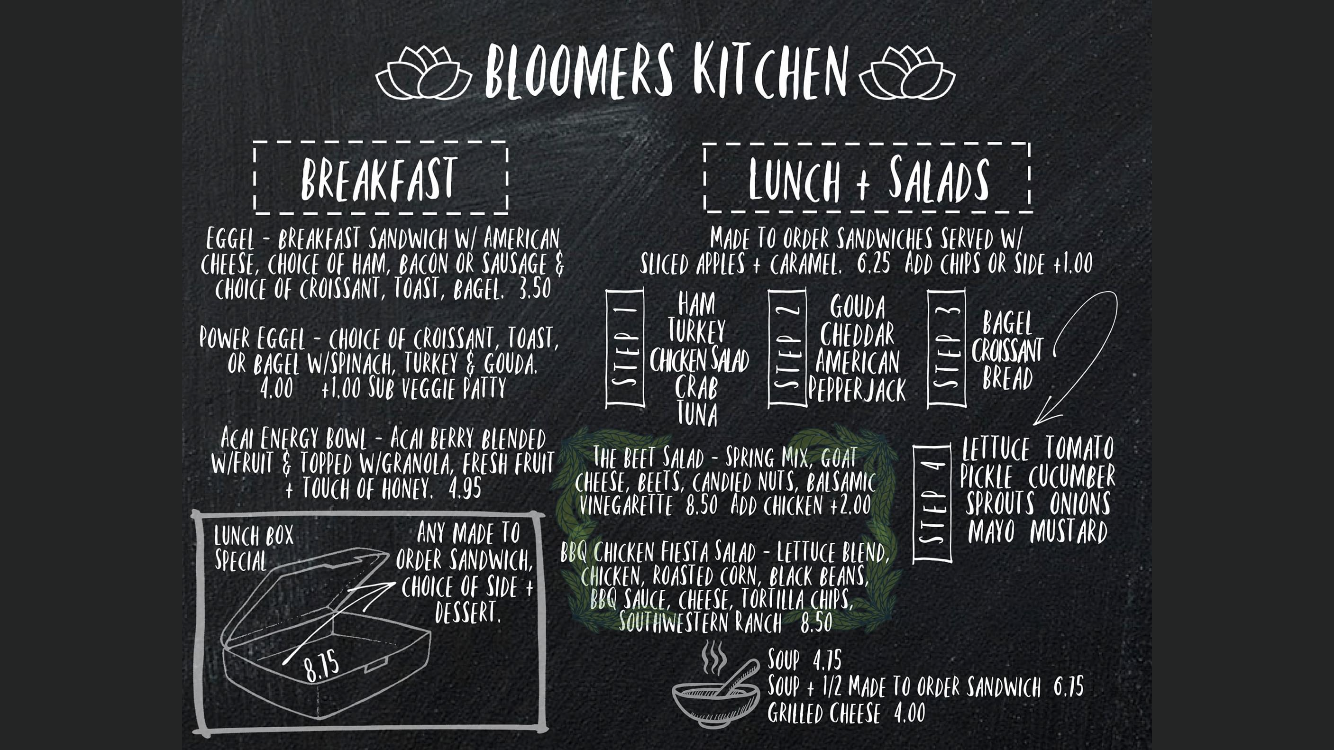 BLOOMERS KITCHEN
BREAKFAST
EGGEL - BREAKFAST SANDWICH W/ AMERICAN
CHEESE, CHOICE OF HAM, BACON OR SAUSAGE &
CHOICE OF CROISSANT, TOAST, BAGEL. 3.50
POWER EGGEL - CHOICE OF CROISSANT, TOAST,
OR BAGEL W/SPINACH, TURKEY & GOUDA.
4.00 +1.00 SUB VEGGIE PATTY
ACAI ENERGY BOWL - ACAI BERRY BLENDED
W/FRUIT & TOPPED W/GRANOLA, FRESH FRUIT
+ TOUCH OF HONEY. 4.95
LUNCH BOX
SPECIAL
ANY MADE TO
ORDER SANDWICH,
CHOICE OF SIDE +
DESSERT.
8.75
LUNCH + SALADS
MADE TO ORDER SANDWICHES SERVED W/
SLICED APPLES + CARAMEL. 6.25 ADD CHIPS OR SIDE +1.00
STEP 1
HAM
TURKEY
CHICKEN SALAD
CRAB
TUNA
STEP 2
GOUDA
CHEDDAR
AMERICAN
PEPPERJACK
STEP 3
BAGEL
CROISSANT
BREAD
STEP 4
LETTUCE TOMATO
PICKLE CUCUMBER
SPROUTS ONIONS
MAYO MUSTARD
THE BEET SALAD - SPRING MIX, GOAT
CHEESE, BEETS, CANDIED NUTS, BALSAMIC
VINEGARETTE 8.50 ADD CHICKEN +2.00
BBQ CHICKEN FIESTA SALAD - LETTUCE BLEND,
CHICKEN, ROASTED CORN, BLACK BEANS,
BBQ SAUCE, CHEESE, TORTILLA CHIPS,
SOUTHWESTERN RANCH 8.50
SOUP 4.75
SOUP + 1/2 MADE TO ORDER SANDWICH 6.75
GRILLED CHEESE 4.00